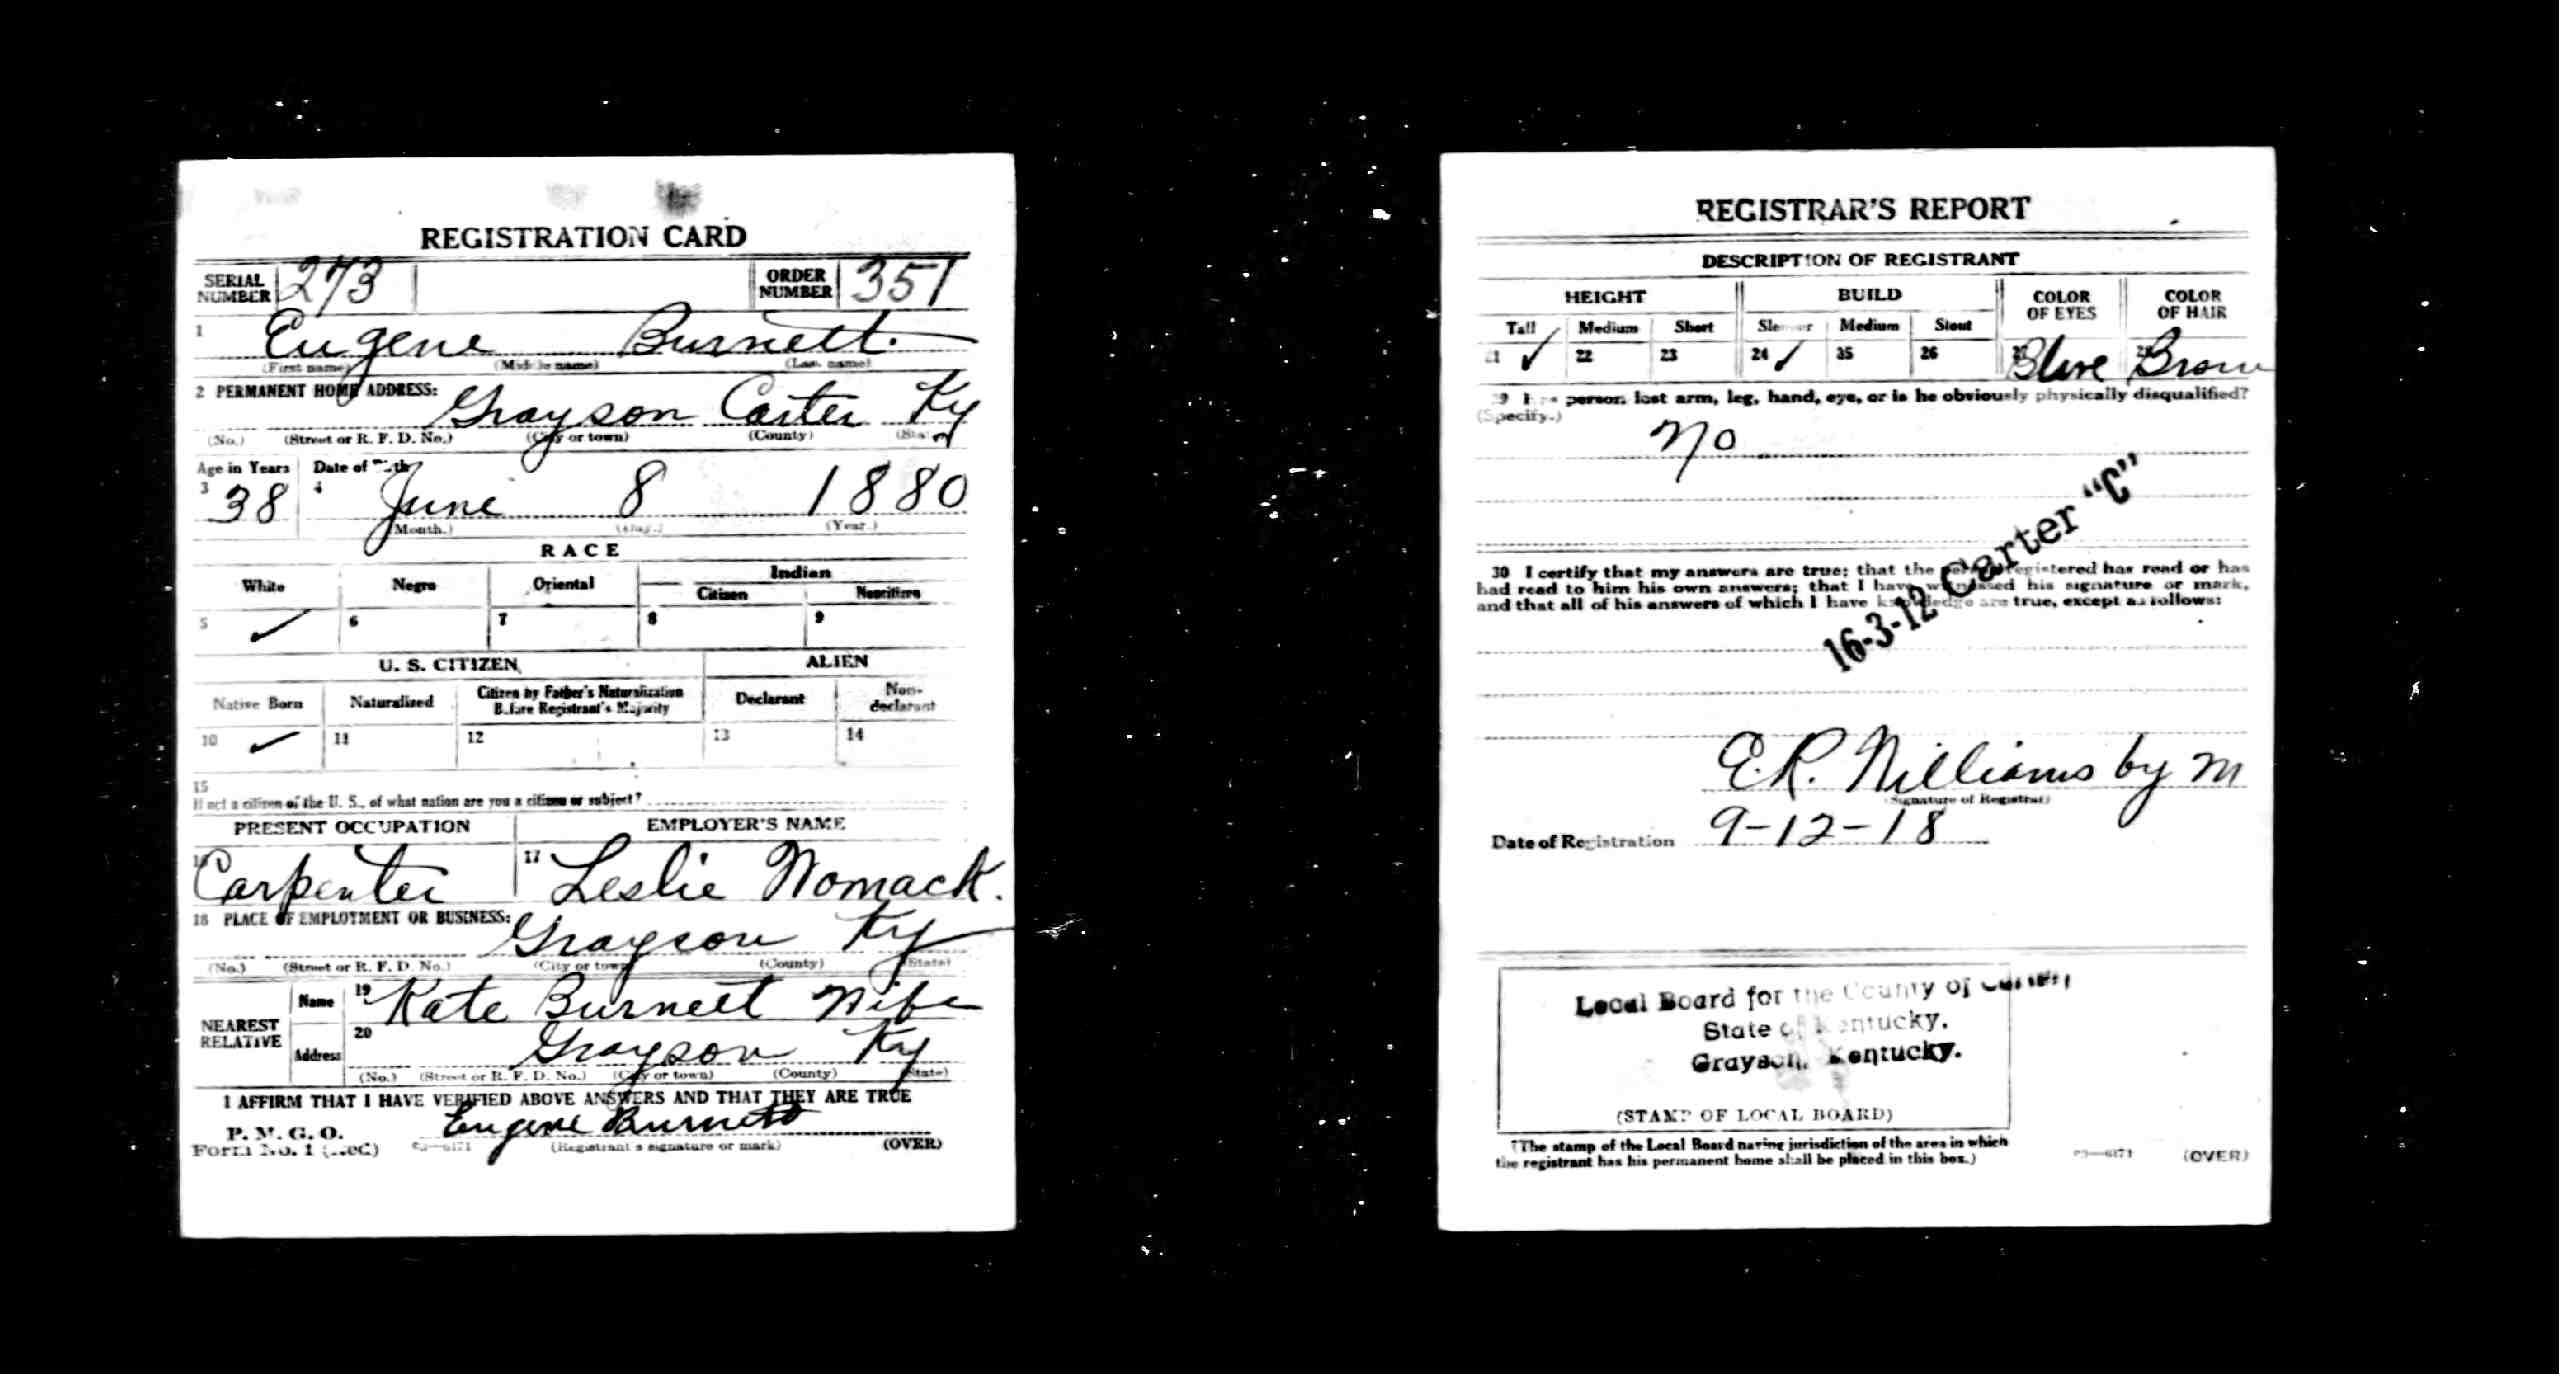 REGISTRATION CARD
SERIAL NUMBER 273 ORDER NUMBER 351
1 Eugene Burnett.
(First name) (Middle name) (Last name)
2 PERMANENT HOME ADDRESS:
Grayson Carter Ky
(No.) (Street or R. F. D. No.) (City or town) (County) (State)
Age in Years Date of Birth
3 38 4 June 8 1880
(Month.) (Day.) (Year.)
RACE
White Negro Oriental Indian
Citizen Noncitizen
5 ✓ 6 7 8 9
U. S. CITIZEN ALIEN
Native Born Naturalized Citizen by Father's Naturalization Before Registrant's Majority Declarant Non-declarant
10 ✓ 11 12 13 14
15
If not a citizen of the U. S., of what nation are you a citizen or subject?
PRESENT OCCUPATION EMPLOYER'S NAME
16 Carpenter 17 Leslie Womack.
18 PLACE OF EMPLOYMENT OR BUSINESS:
Grayson Ky
(No.) (Street or R. F. D. No.) (City or town) (County) (State)
NEAREST RELATIVE
Name 19 Kate Burnett Wife
Address 20 Grayson Ky
(No.) (Street or R. F. D. No.) (City or town) (County) (State)
I AFFIRM THAT I HAVE VERIFIED ABOVE ANSWERS AND THAT THEY ARE TRUE
P. M. G. O.
Form No. 1 (Red) Eugene Burnett
(Registrant's signature or mark) (OVER)
REGISTRAR'S REPORT
DESCRIPTION OF REGISTRANT
HEIGHT BUILD COLOR OF EYES COLOR OF HAIR
Tall Medium Short Slender Medium Stout
21 ✓ 22 23 24 ✓ 25 26 27 Blue 28 Brown
29 Has person lost arm, leg, hand, eye, or is he obviously physically disqualified?
(Specify.)
No
30 I certify that my answers are true; that the person registered has read or has
had read to him his own answers; that I have witnessed his signature or mark,
and that all of his answers of which I have knowledge are true, except as follows:
16-3-12 Carter "C"
E. R. Williams by M
(Signature of Registrar)
Date of Registration 9-12-18
Local Board for the County of Carter,
State of Kentucky.
Grayson, Kentucky.
(STAMP OF LOCAL BOARD)
(The stamp of the Local Board having jurisdiction of the area in which
the registrant has his permanent home shall be placed in this box.)
(OVER)